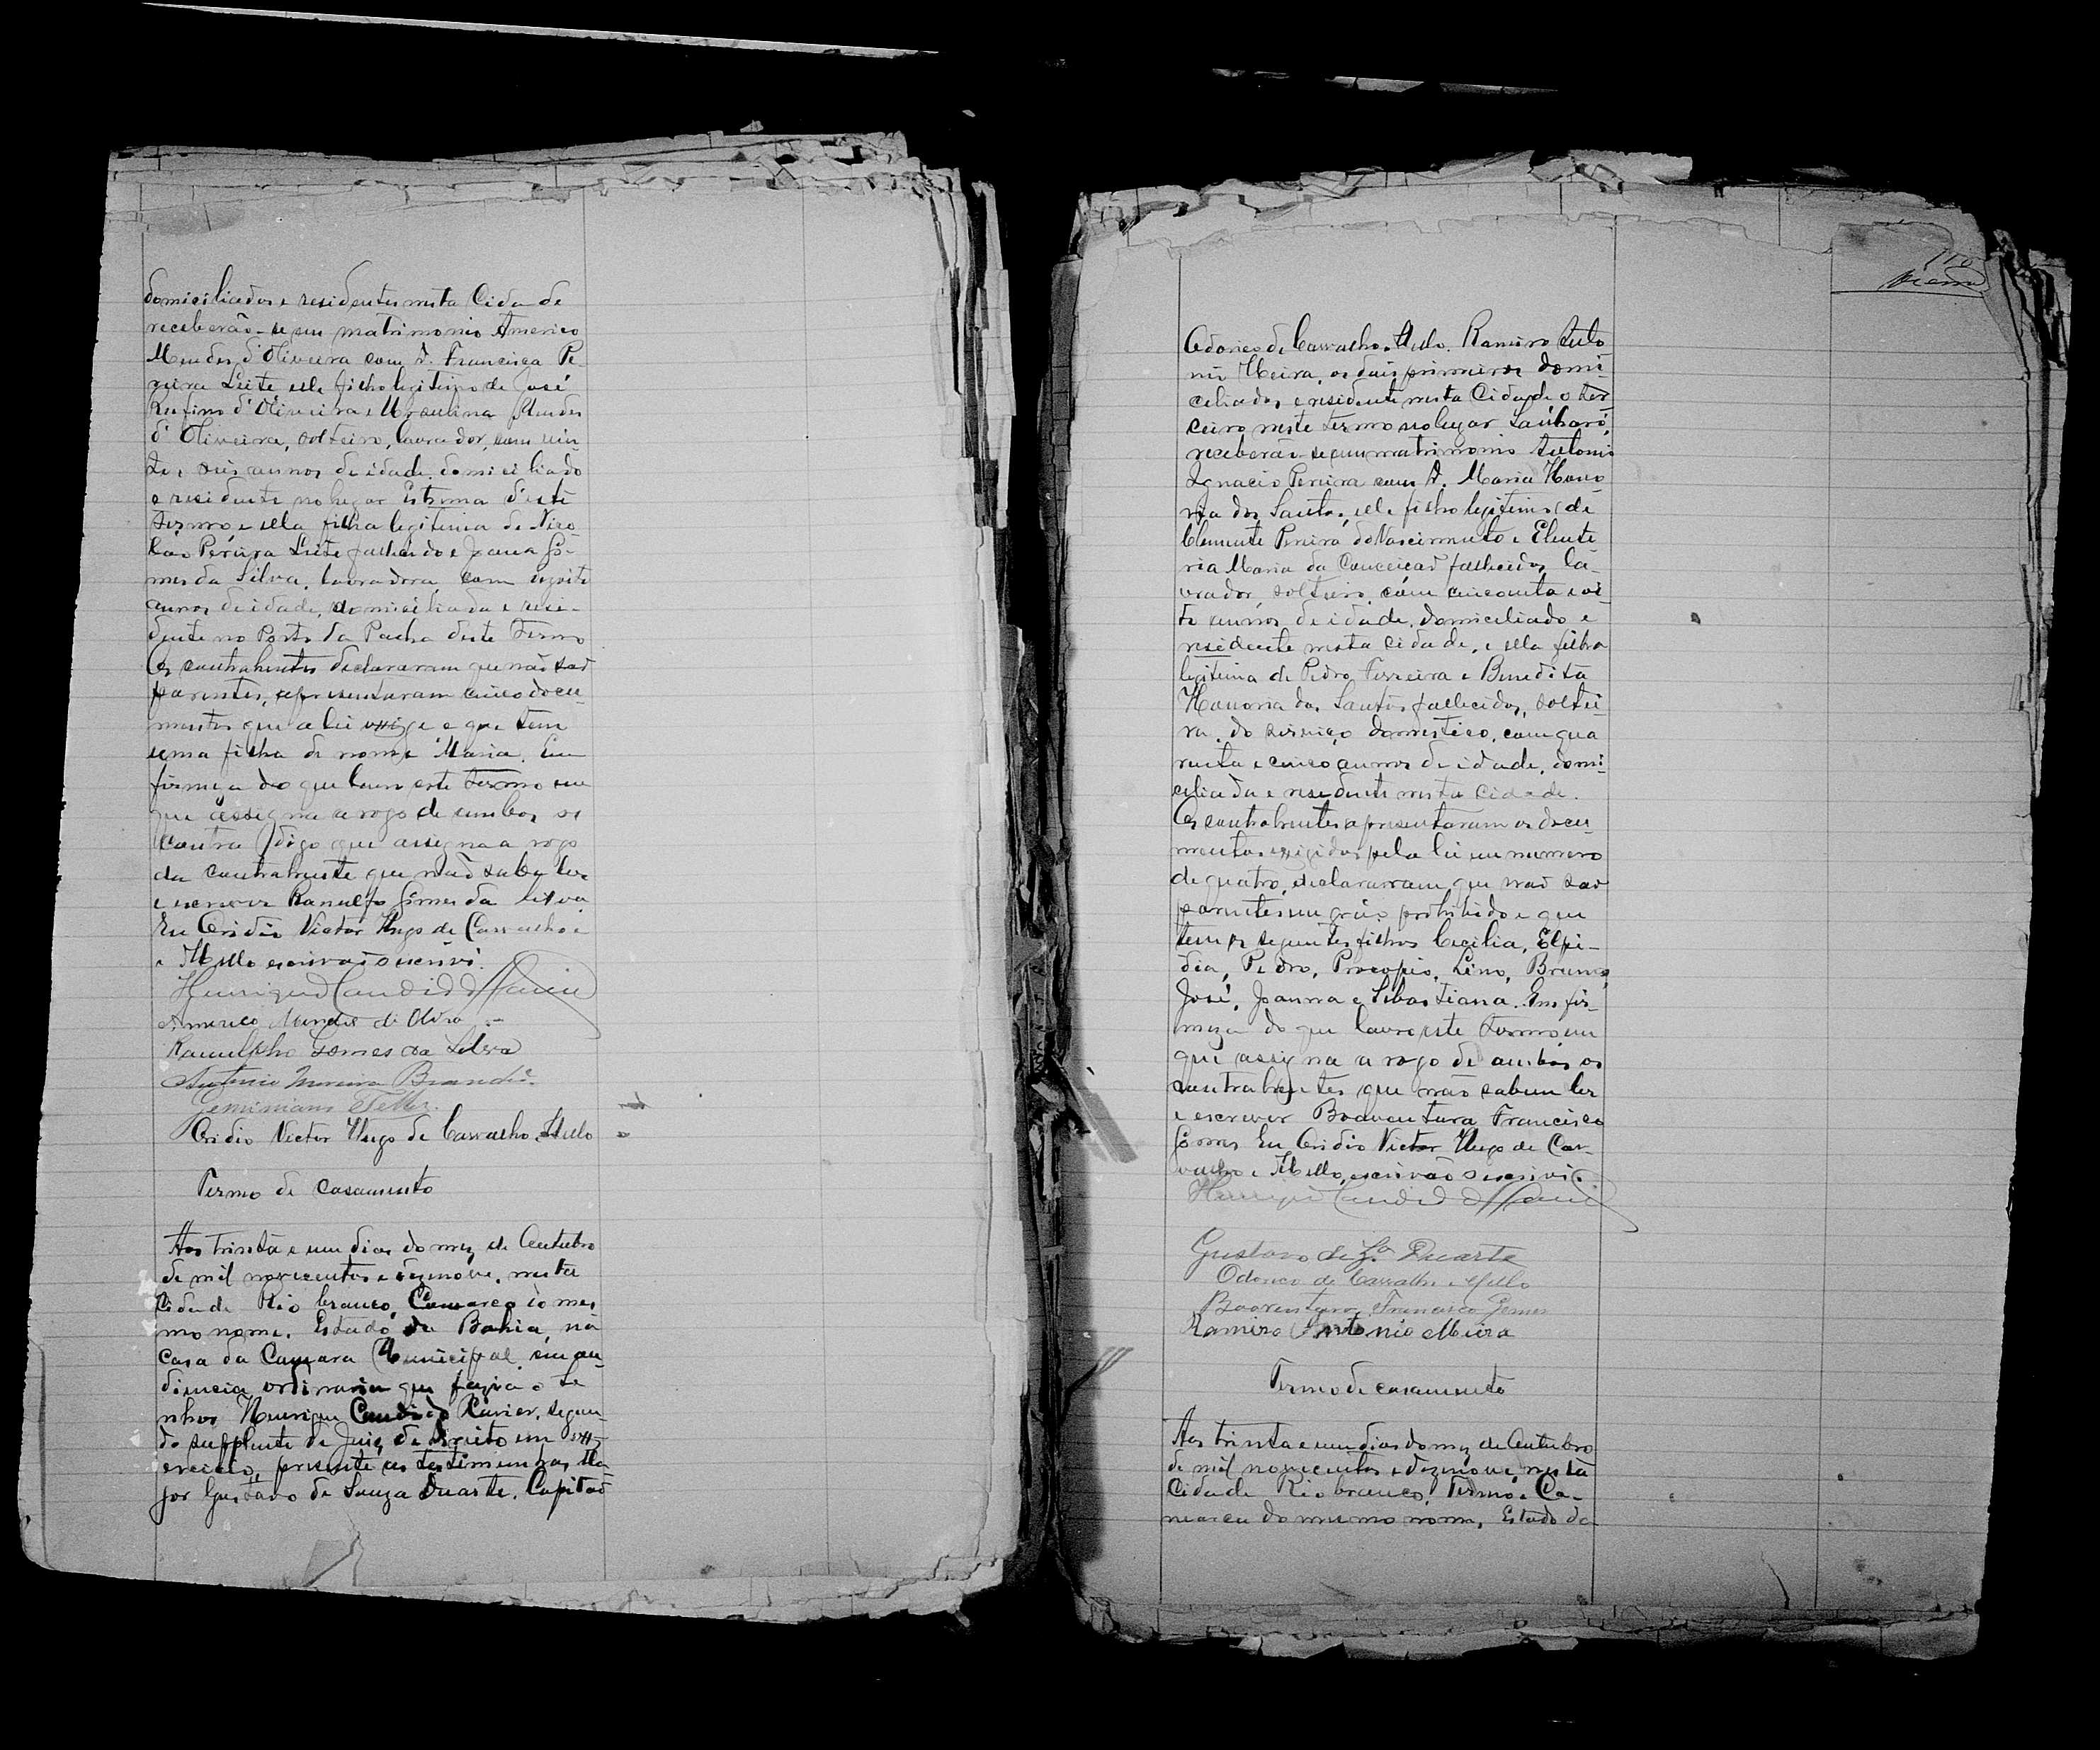 domiciliados e residentes nesta Cidade
receberão-se em matrimonio Americo
Mendes d'Oliveira com D. Francisca Pe
reira Leite elle filho legitimo de José
Rufino d'Oliveira e Ursulina Mendes
d'Oliveira, solteiro, lavrador, com vin-
te e seis annos de idade, domiciliado
e residente no lugar Estrema d'este
termo e ella filha legitima de Nico
láo Pereira Leite fallecido e Joana Go-
mes da Silva, lavradora, com dezoito
annos de idade, domiciliada e resi-
dente no Porto da Pacha deste Termo
Os contrahentes declararam que não são
parentes, apresentaram cinco docu-
mentos que a lei exige e que tem
uma filha de nome Maria. Em
firmeza do que lavro este termo em
que assigna a rogo de ambos os
contra digo que assigna a rogo
da contrahente que não sabe ler
e escrever Ranulfo Gomes da Silva
Eu Oridio Victor Hugo de Carvalho e
e Mello escrivão o escrivi.
Henrique Candido Xavier
Americo Mendes de Olivra
Ranulpho Gomes da Silva
Antonio Moreira Brandão
Geminiano Telles
Oridio Victor Hugo de Carvalho e Mello
Termo de casamento
Aos trinta e um dias do mez de Outubro
de mil novecentos e dezenove, nesta
Cidade Rio branco, Comarca do mes
mo nome, Estado da Bahia, na
casa da Camara Municipal em au-
diencia ordinaria que fazia o Se
nhor Henrique Candido Xavier, segun-
do supplente de Juiz de Direito em ex-
ercicio, presente as testimunhas Ma
jor Gustavo de Souza Duarte, Capitão
110
Odorico de Carvalho e Mello, Ramiro Anto
nio Meira, os dois primeiros domi-
ciliados e residente nesta Cidade o ter
ceiro neste termo no lugar Sanharó,
receberão-se em matrimonio Antonio
Ignacio Pereira com D. Maria Hono-
ria dos Santos, elle filho legitimo de
Clemente Pereira do Nascimento e Eleute
ria Maria da Conceição fallecidos, la-
vrador, solteiro, com cincoenta e oi-
to annos de idade, domiciliado e
residente nesta cidade, e ella filha
legitima de Pedro Ferreira e Benedita
Honoria dos Santos fallecidos, soltei-
ra, do serviço domestico, com qua
renta e cinco annos de idade, domi-
ciliada e residente nesta cidade.
Os contrahentes apresentaram os docu-
mentos exigidos pela lei em numero
de quatro, declararam que não são
parentes em gráo prohibido e que
tem os seguintes filhos Cecilia, Elpi-
dia, Pedro, Procopio, Lino, Bruno,
José, Joanna e Sebastiana. Em fir-
meza do que lavro este termo em
que assigna a rogo de ambos os
contrahentes que não sabem ler
e escrever Boaventura Francisco
Gomes Eu Oridio Victor Hugo de Car-
valho e Mello, escrivão o escrivi.
Henrique Candido Xavier
Gustavo de Sza Duarte
Odorico de Carvalho e Mello
Boaventura Francisco Gomes
Ramiro Antonio Meira
Termo de casamento
Aos trinta e um dias do mez de Outubro
de mil novecentos e dezenove nesta
Cidade Rio branco, Termo e Co-
marca do mesmo nome, Estado da